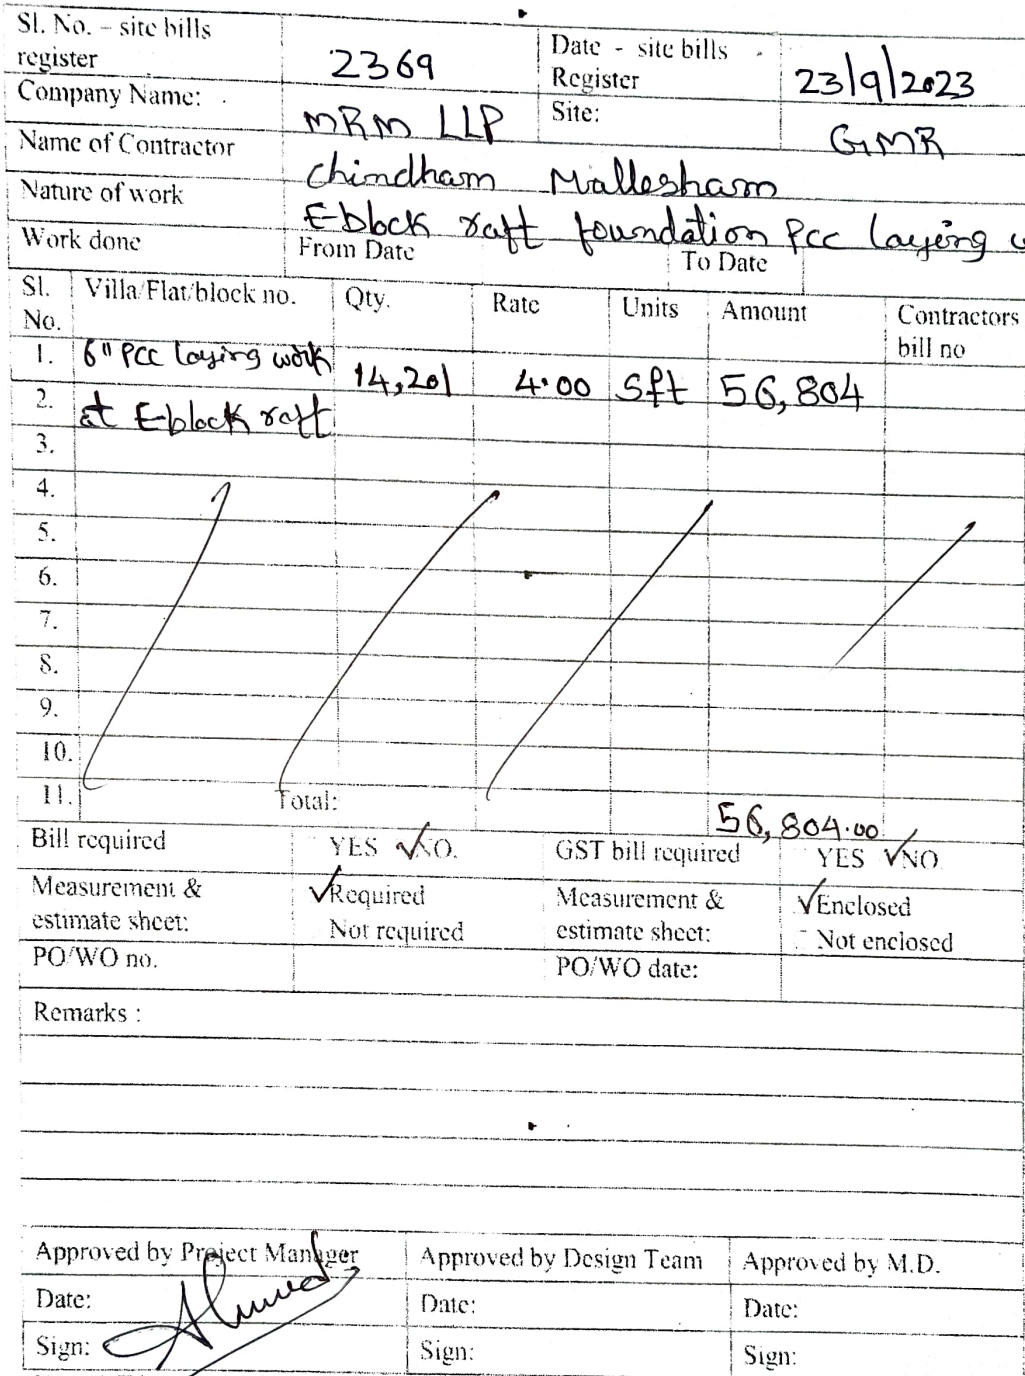 Sl. No. – site bills register 2369 Date - site bills Register 23/9/2023
Company Name: MRM LLP Site: GMR
Name of Contractor Chindham Mallesham
Nature of work E-block raft foundation PCC laying
Work done From Date To Date
Sl. No. Villa/Flat/block no. Qty. Rate Units Amount Contractors bill no
1. 6" PCC laying work 14,201 4.00 Sft 56,804
2. at E-block raft
3.
4.
5.
6.
7.
8.
9.
10.
11. Total: 56,804.00
Bill required YES ✓NO. GST bill required YES ✓NO
Measurement & estimate sheet: ✓Required Not required Measurement & estimate sheet: ✓Enclosed Not enclosed
PO/WO no. PO/WO date:
Remarks :
Approved by Project Manager Approved by Design Team Approved by M.D.
Date: Date: Date:
Sign: Sign: Sign: